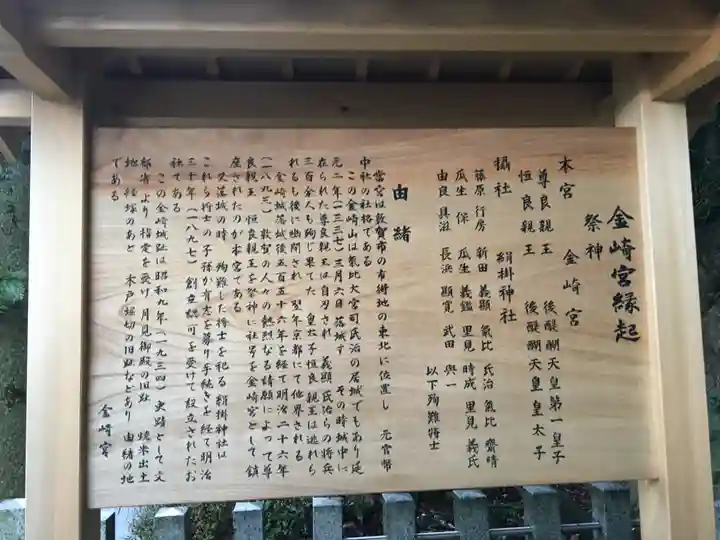 金崎宮縁起
祭神
本宮 金崎宮
尊良親王 後醍醐天皇第一皇子
恒良親王 後醍醐天皇皇太子
攝社 絹掛神社
藤原行房 新田義顯 氣比氏治 氣比齋晴
瓜生保 瓜生義鑑 里見時成 里見義氏
由良具滋 長浜顕寛 武田與一
以下殉難将士
由緒
當宮は敦賀市の市街地の東北に位置し 元官幣
中社の社格である
この金崎山は氣比大宮司氏治の居城でもあり延
元二年(一三三七)三月六日落城す その時城中に
在られた尊良親王は自刃され 義顯 氏治らの将兵
三百余人も殉じ果てた 皇太子恒良親王は逃れら
れるも後に幽閉され 翌年京都にて他界される
金崎城落城後五百五十六年を経て明治二十六年
(一八九三)敦賀の人々の熱烈なる請願によって尊
良親王 恒良親王を祭神に社号を金崎宮として鎮
座されたのが本宮である
又落城の時 殉難した将士を祀る絹掛神社は
これら将士の子孫が有志を募り手続きを経て明治
三十年(一八九七)創立認可を受けて設立されたお
社である
この金崎城趾は昭和九年(一九三四)史蹟として文
部省より指定を受け 月見御殿の旧趾 焼米出土
地 経塚のあと 木戸堀切の旧趾などあり 由緒の地
である
金崎宮